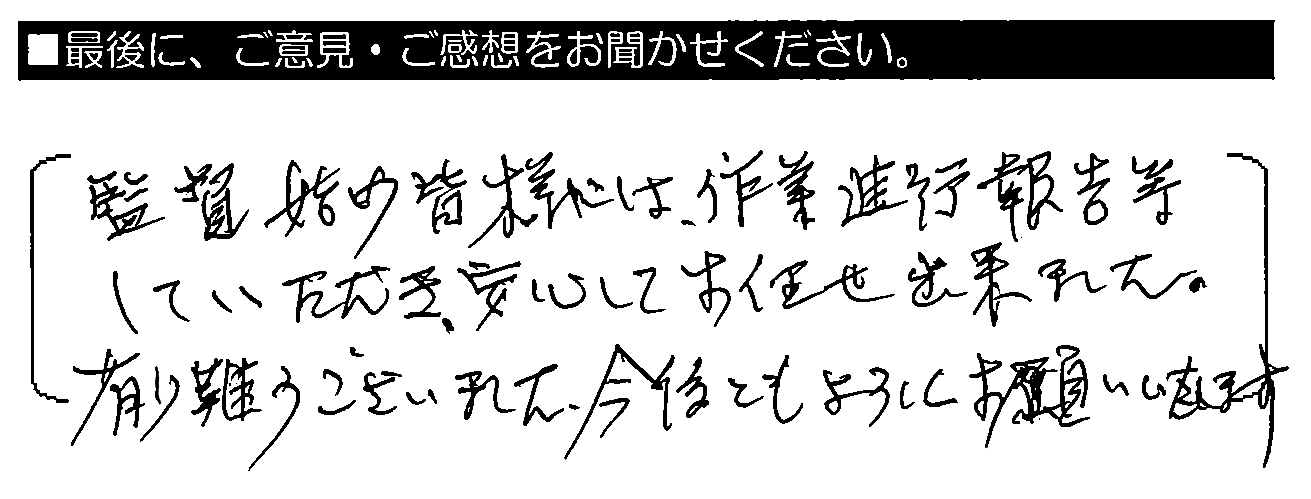 ■最後に、ご意見・ご感想をお聞かせください。
監督始め皆様には、作業進行報告等
していただき、安心してお任せ出来ました。
有り難うございました、今後ともよろしくお願いいたします